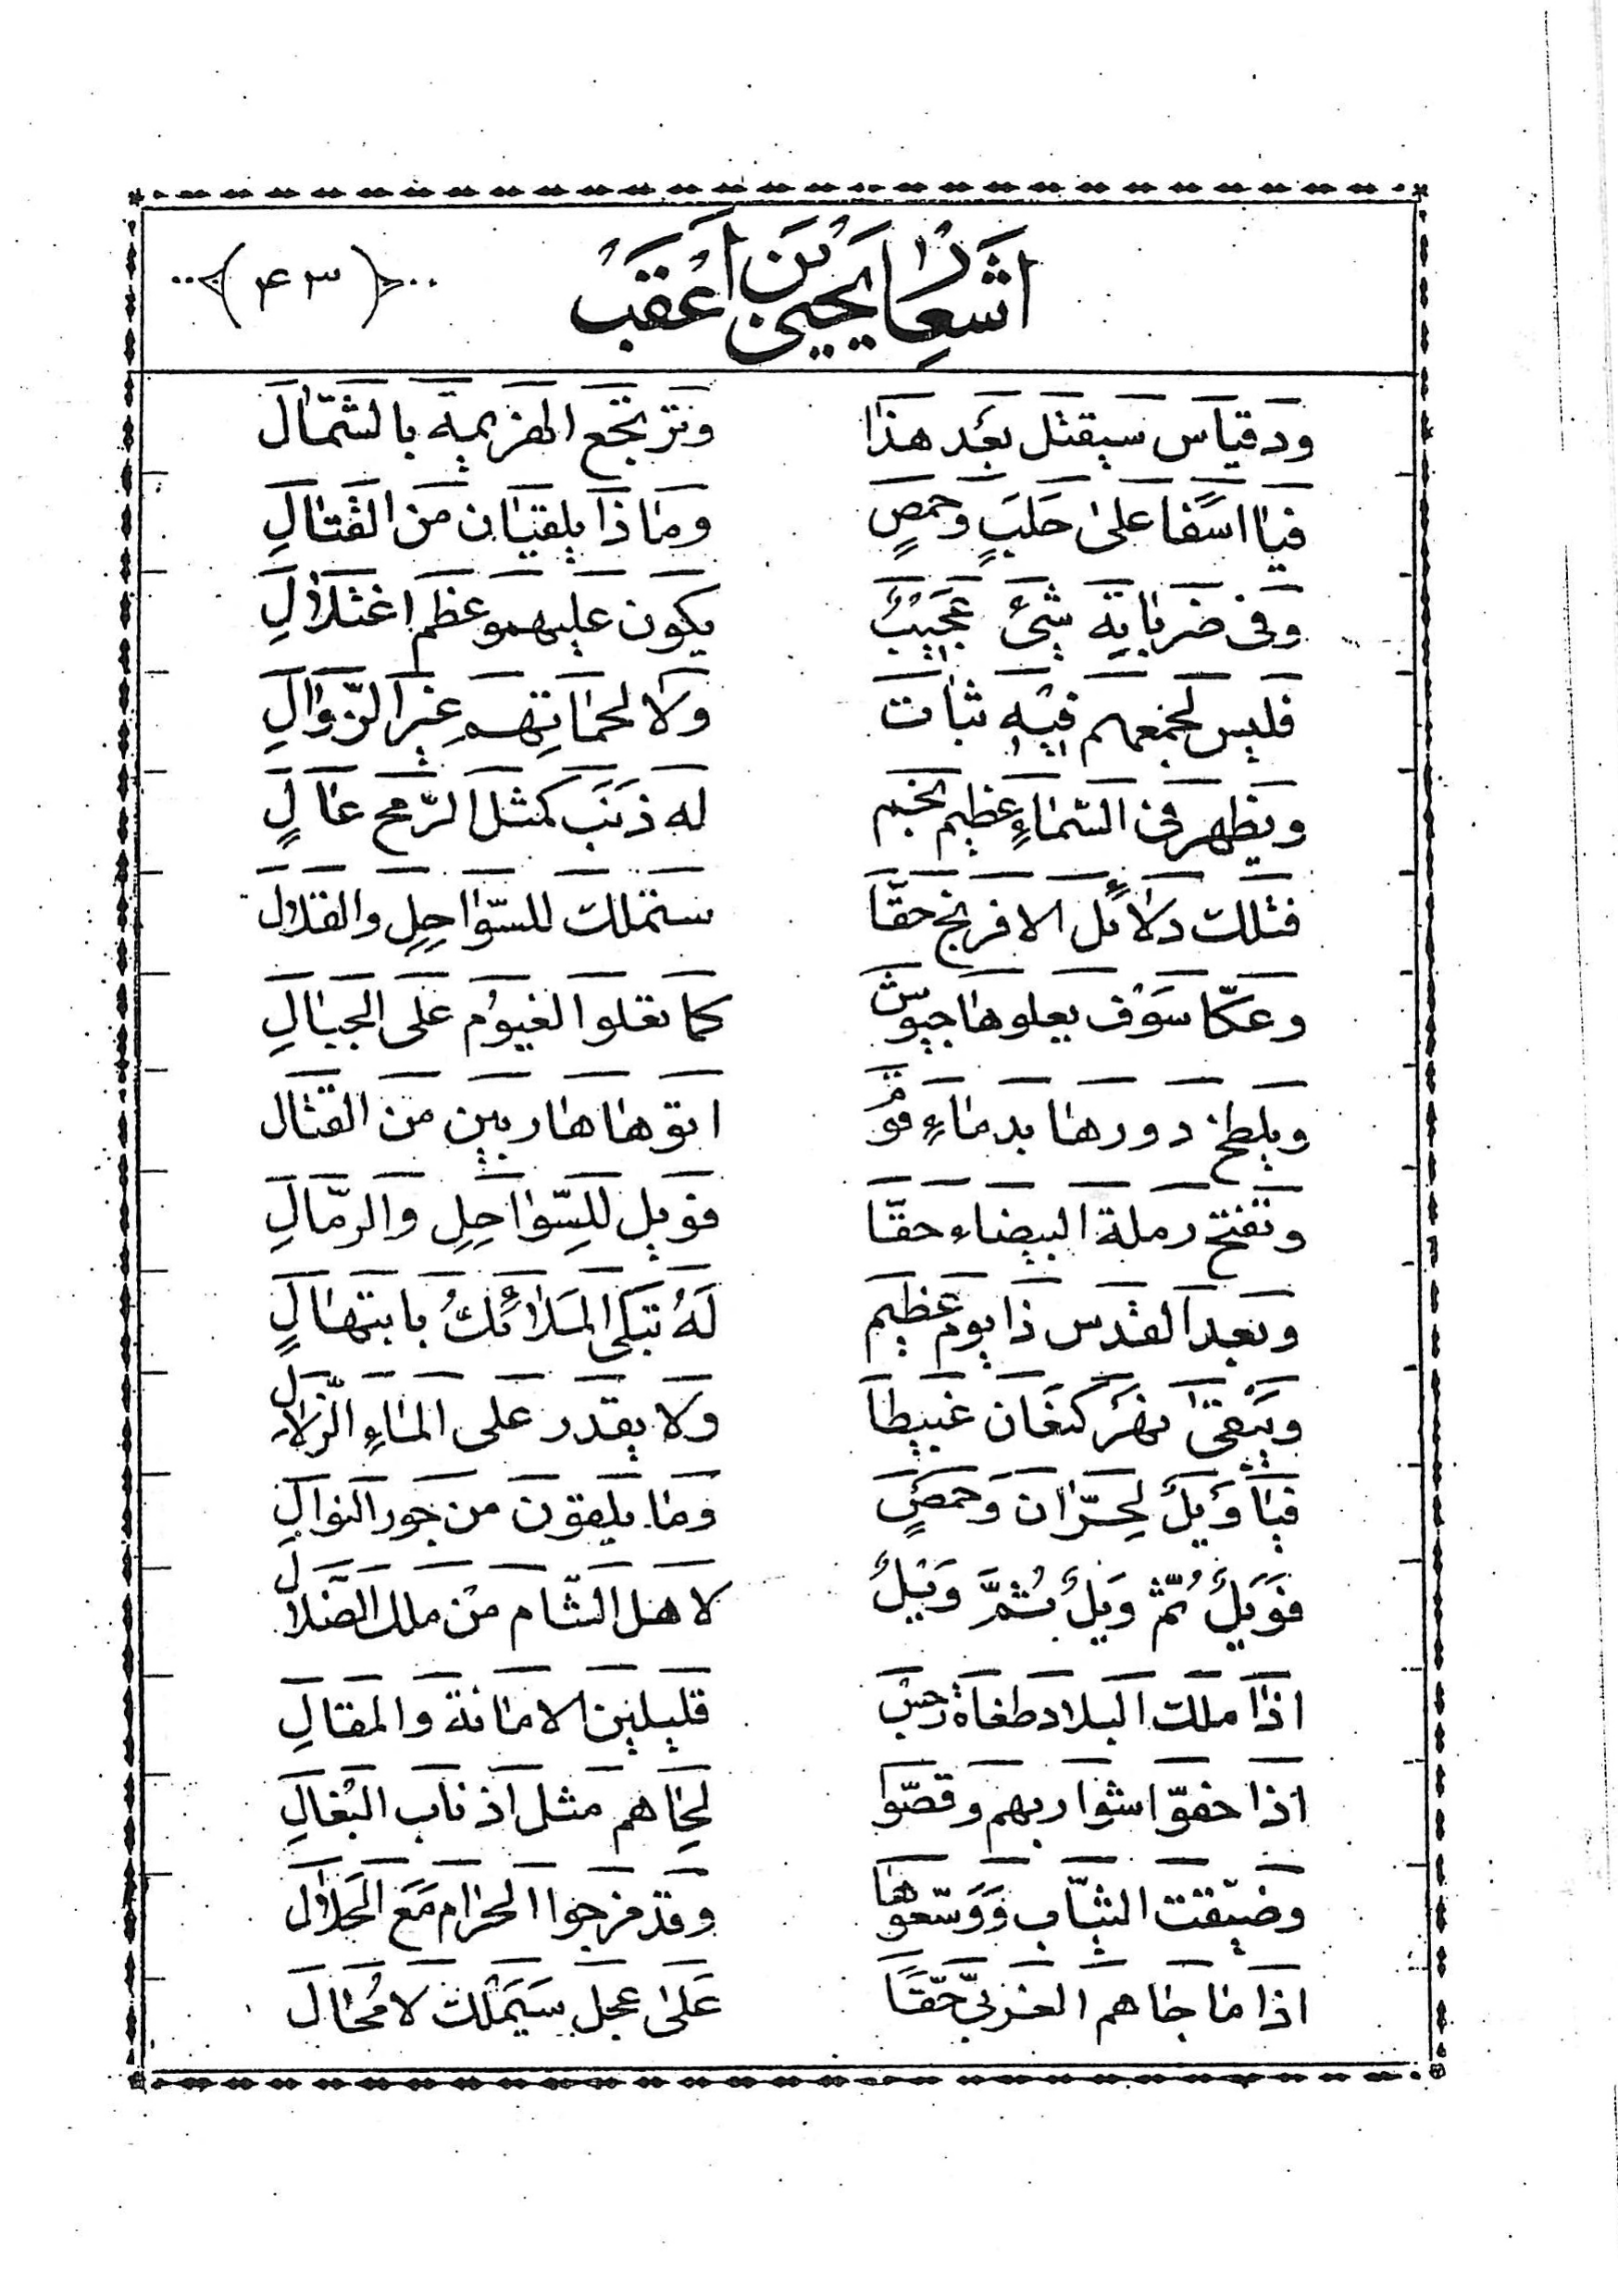 اَشْعَارُ يَحْيَى بْنِ اَعْقَبْ
(۴۳)
ودقیاس سیقتل بعد هذا وترتجع الهزیمة بالشمال
فیا اسفا علی حلبٍ وحمصٍ وماذا یلقیان من القتالِ
وفی ضربایه شیء عجیب یکون علیهمو عظم اغتلالِ
فلیس لجمعهم فیه ثبات ولا لحماتهم غیر الزّوالِ
ویظهر فی السّماءِ عظیم نجم له ذنب کمثل الرّمح عالٍ
فتلك دلائل الافرنج حقّا ستملك للسّواحِلِ والقلال
وعکّا سوف یعلوها جیوش کما تعلوا الغیوم علی الجبالِ
ویلطخ دورها بدماءِ قومٌ اتوها هاربین من القتال
وتفتح رملة البیضاء حقّا فویل للسّواحِلِ والرمّالِ
وبعد القدس ذا یوم عظیم لهُ تبکی الملائكُ بابتهالٍ
ویبقی نهر کنعان غبیطا ولا یقدر علی الماءِ الزّلال
فیا ویل لحرّان وحمصٍ وما یلقون من جور النوالِ
فویلٌ ثمّ ویلٌ ثمّ ویلٌ لاهل الشّام من ملك الضّلال
اذا ملك البلاد طغاة قلیلین الامانة والمقالِ
اذا حفوّا شواربهم وقصّوا لحاهم مثل اذناب البغالِ
وضیّقت الثیّاب ووسّعوها وقد مرجوا الحرام مع الحلال
اذا ما جاهم الغربیّ حقّاً علی عجل سیملك لا محال